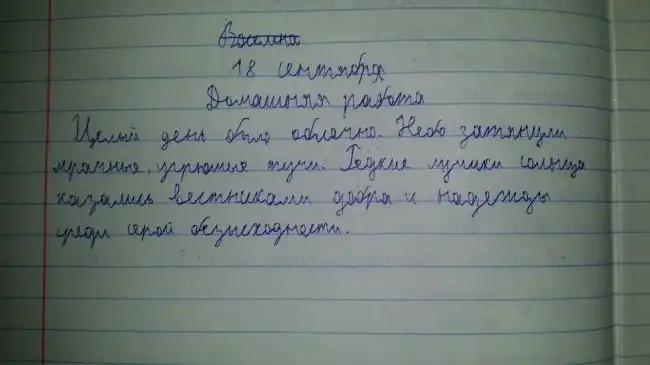 18 сентября
Домашняя работа
Целый день было облачно. Небо затянули
мрачные, угрюмые тучи. Редкие лучики солнца
казались вестниками добра и надежды
среди серой безысходности.